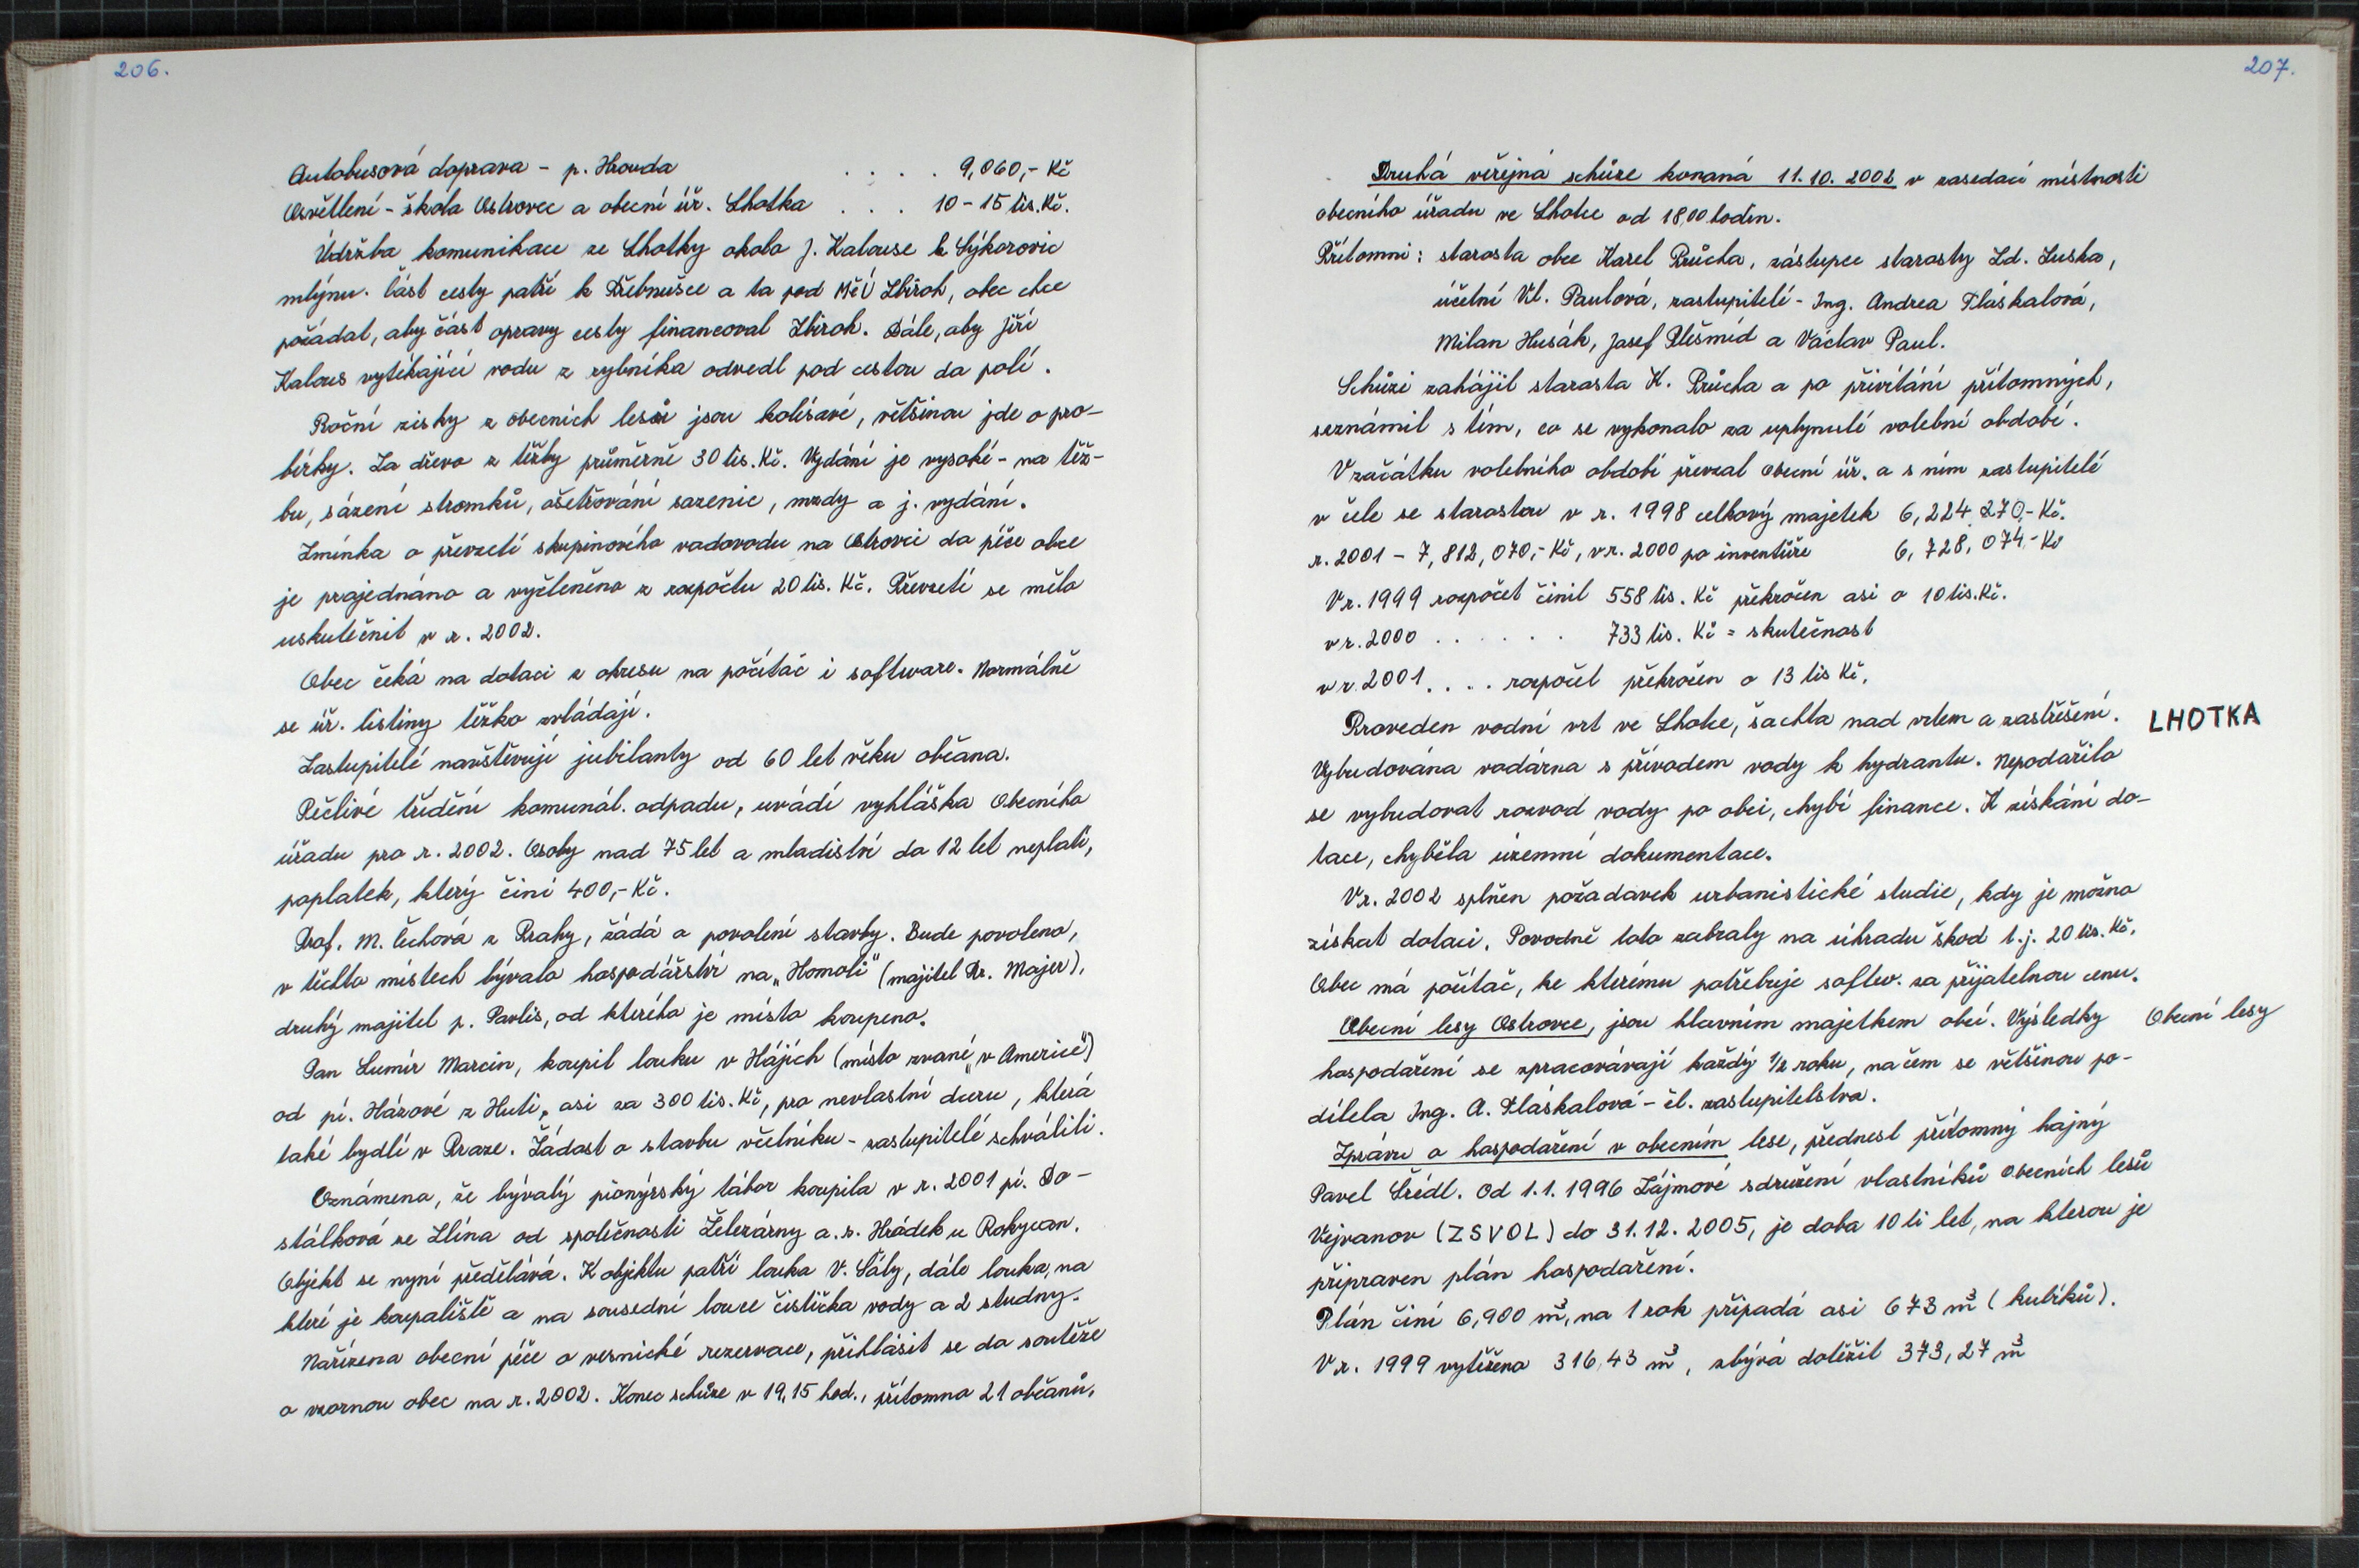 206.
Autobusová doprava - p. Hrouda . . . . 9,060,- Kč
Osvětlení - škola Ostrovec a obecní úř. Lhotka . . . 10-15 tis. Kč.
Údržba komunikace ze Lhotky okolo J. Kalouse k Sýkorovic
mlýnu. Část cesty patří k Třebnušce a ta pod MěÚ Zbiroh, obec chce
požádat, aby část opravy cesty financoval Zbiroh. Dále, aby Jiří
Kalous vytékající vodu z rybníka odvedl pod cestou do polí.
Roční zisky z obecních lesů jsou kolísavé, většinou jde o pro-
bírky. Za dřevo z těžby průměrně 30 tis. Kč. Vydání je vysoké - na těž-
bu, sázení stromků, ošetřování sazenic, mzdy a j. vydání.
Zmínka o převzetí skupinového vodovodu na Ostrovci do péče obce
je projednáno a vyčleněno z rozpočtu 20 tis. Kč. Převzetí se mělo
uskutečnit v r. 2002.
Obec čeká na dotaci z okresu na počítač i software. Normálně
se úř. listiny těžko zvládají.
Zastupitelé navštěvují jubilanty od 60 let věku občana.
Pečlivé třídění komunál. odpadu, uvádí vyhláška Obecního
úřadu pro r. 2002. Osoby nad 75 let a mladiství do 12 let neplatí,
poplatek, který činí 400,- Kč.
Prof. M. Čechová z Prahy, žádá o povolení stavby. Bude povoleno,
v těchto místech bývalo hospodářství na „Homoli" (majitel Dr. Majer),
druhý majitel p. Pavlis, od kterého je místo koupeno.
Pan Lumír Marcin, koupil louku v Hájích (místo zvané „v Americe")
od pí. Házové z Huti, asi za 300 tis. Kč, pro nevlastní dceru, která
také bydlí v Praze. Žádost o stavbu včelníku - zastupitelé schválili.
Oznámeno, že bývalý pionýrský tábor koupila v r. 2001 pí. Do-
stálková ze Zlína od společnosti Železárny a.s. Hrádek u Rokycan.
Objekt se nyní předělává. K objektu patří louka V. Sály, dále louka, na
které je koupaliště a na sousední louce čistička vody a 2 studny.
Nařízena obecní péče o vesnické rezervace, přihlásit se do soutěže
o vzornou obec na r. 2002. Konec schůze v 19,15 hod., přítomno 21 občanů.
207.
Druhá veřejná schůze konaná 11.10. 2002 v zasedací místnosti
obecního úřadu ve Lhotce od 18,00 hodin.
Přítomni: starosta obce Karel Průcha, zástupce starosty Ld. Luska,
účetní Vl. Paulová, zastupitelé - Ing. Andrea Pláskalová,
Milan Husák, Josef Plešmíd a Václav Paul.
Schůzi zahájil starosta K. Průcha a po přivítání přítomných,
seznámil s tím, co se vykonalo za uplynulé volební období.
V začátku volebního období převzal Obecní úř. a s ním zastupitelé
v čele se starostou v r. 1998 celkový majetek 6,224,270,- Kč.
r. 2001 - 7,812,070,- Kč, v r. 2000 po inventůře 6,728,074,- Kč
V r. 1999 rozpočet činil 558 tis. Kč překročen asi o 10 tis. Kč.
v r. 2000 . . . . . . 733 tis. Kč = skutečnost
v r. 2001 . . . . rozpočet překročen o 13 tis Kč.
Proveden vodní vrt ve Lhotce, šachta nad vrtem a zastřešení.
LHOTKA
Vybudována vodárna s přívodem vody k hydrantu. Nepodařilo
se vybudovat rozvod vody po obci, chybí finance. K získání do-
tace, chyběla územní dokumentace.
V r. 2002 splněn požadavek urbanistické studie, kdy je možno
získat dotaci. Povodně toto zabraly na úhradu škod t.j. 20 tis. Kč.
Obec má počítač, ke kterému potřebuje softw. za přijatelnou cenu.
Obecní lesy Ostrovce, jsou hlavním majetkem obcí. Výsledky
Obecní lesy
hospodaření se zpracovávají každý 1/2 roku, na čem se většinou po-
dílela Ing. A. Pláskalová - čl. zastupitelstva.
Zprávu o hospodaření v obecním lese, přednesl přítomný hajný
Pavel Šrédl. Od 1.1. 1996 Zájmové sdružení vlastníků Obecních lesů
Vejvanov (ZSVOL) do 31.12. 2005, je doba 10 ti let, na kterou je
připraven plán hospodaření.
Plán činí 6,900 m³, na 1 rok připadá asi 673 m³ (kubíků).
V r. 1999 vytěženo 316,43 m³, zbývá dotěžit 373,27 m³